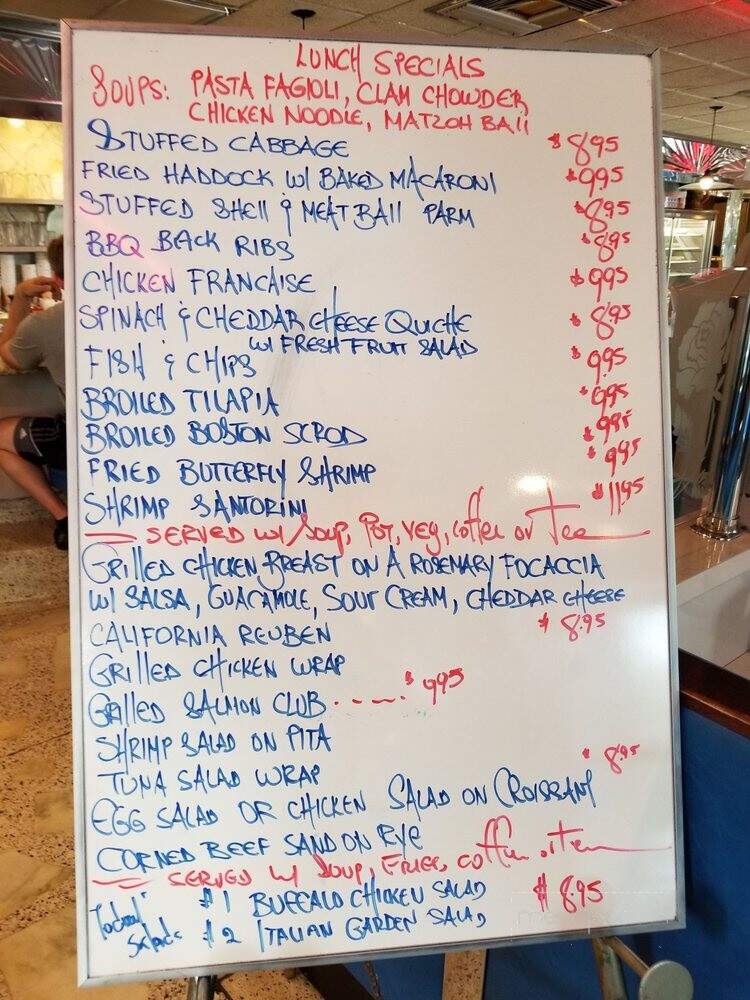 LUNCH SPECIALS
SOUPS: PASTA FAGIOLI, CLAM CHOWDER
CHICKEN NOODLE, MATZOH BAll
STUFFED CABBAGE $895
FRIED HADDOCK W/ BAKED MACARONI $995
STUFFED SHEll & MEAT BAll PARM $895
BBQ BACK RIBS $895
CHICKEN FRANCAISE $995
SPINACH & CHEDDAR CHEESE QUICHE $895
W/ FRESH FRUIT SALAD
FISH & CHIPS $995
BROILED TILAPIA $995
BROILED BOSTON SCROD $995
FRIED BUTTERFLY SHRIMP $995
SHRIMP SANTORINI $1195
SERVED W/ SOUP, POT, VEG, COFFEE OR TEA
GRILLED CHICKEN BREAST ON A ROSEMARY FOCACCIA
W/ SALSA, GUACAMOLE, SOUR CREAM, CHEDDAR CHEESE
CALIFORNIA REUBEN $8.95
GRILLED CHICKEN WRAP
GRIllED SALMON CLUB ..--.. $995
SHRIMP SALAD ON PITA
TUNA SALAD WRAP $895
EGG SALAD OR CHICKEN SALAD ON CROISSANT
CORNED BEEF SAND ON RYE
SERVED W/ SOUP, FRIES, COFFEE
#1 BUFFALO CHICKEN SALAD $895
Salads #2 ITALIAN GARDEN SALAD